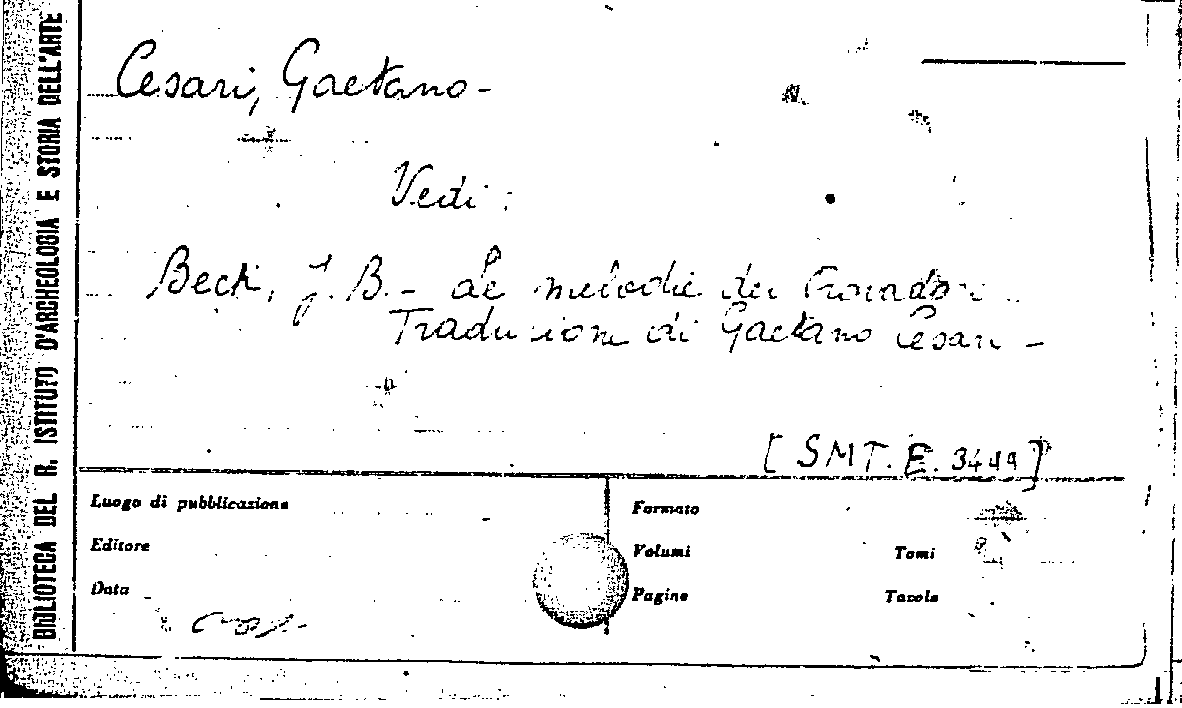 BIBLIOTECA DEL R. ISTITUTO D'ARCHEOLOGIA E STORIA DELL'ARTE
Cesari, Gaetano -
Vedi :
Beck, J. B. - Le melodie dei Trovadori
Traduzione di Gaetano Cesari -
[SMT. E. 3449]
Luogo di pubblicazione
Formato
Editore
Volumi
Tomi
Data
Pagine
Tavole